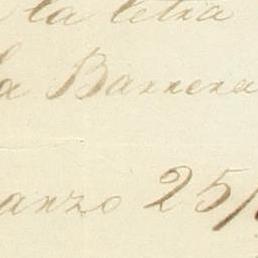 la letra
la Barrera
anzo 25/